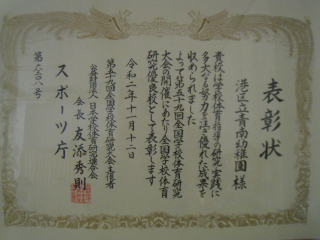 表彰状
港区立青南幼稚園様
貴校は学校体育指導の研究実践に
多大なる努力を注ぎ優れた成果を
収められました
よって第五十九回全国学校体育研究
大会の開催にあたり全国学校体育
研究優良校として表彰します
令和二年十一月十二日
第五十九回全国学校体育研究大会主催者
公益財団法人 日本学校体育研究連合会
会長 友添秀則
スポーツ庁